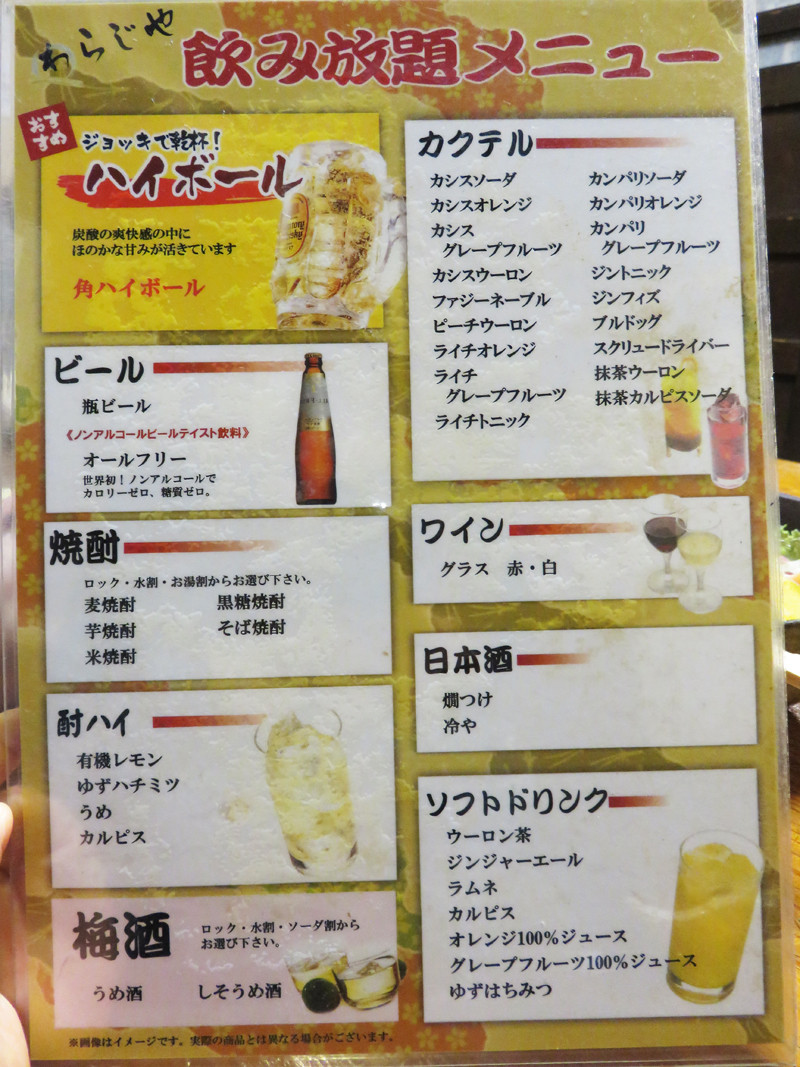 わらじや
飲み放題メニュー
おす
すめ
ジョッキで乾杯！
ハイボール
炭酸の爽快感の中に
ほのかな甘みが活きています
角ハイボール
ビール
瓶ビール
《ノンアルコールビールテイスト飲料》
オールフリー
世界初！ノンアルコールで
カロリーゼロ、糖質ゼロ。
焼酎
ロック・水割・お湯割からお選び下さい。
麦焼酎
芋焼酎
米焼酎
黒糖焼酎
そば焼酎
酎ハイ
有機レモン
ゆずハチミツ
うめ
カルピス
梅酒
ロック・水割・ソーダ割から
お選び下さい。
うめ酒
しそうめ酒
カクテル
カシスソーダ
カシスオレンジ
カシス
グレープフルーツ
カシスウーロン
ファジーネーブル
ピーチウーロン
ライチオレンジ
ライチ
グレープフルーツ
ライチトニック
カンパリソーダ
カンパリオレンジ
カンパリ
グレープフルーツ
ジントニック
ジンフィズ
ブルドッグ
スクリュードライバー
抹茶ウーロン
抹茶カルピスソーダ
ワイン
グラス　赤・白
日本酒
燗つけ
冷や
ソフトドリンク
ウーロン茶
ジンジャーエール
ラムネ
カルピス
オレンジ100%ジュース
グレープフルーツ100%ジュース
ゆずはちみつ
※画像はイメージです。実際の商品とは異なる場合がございます。